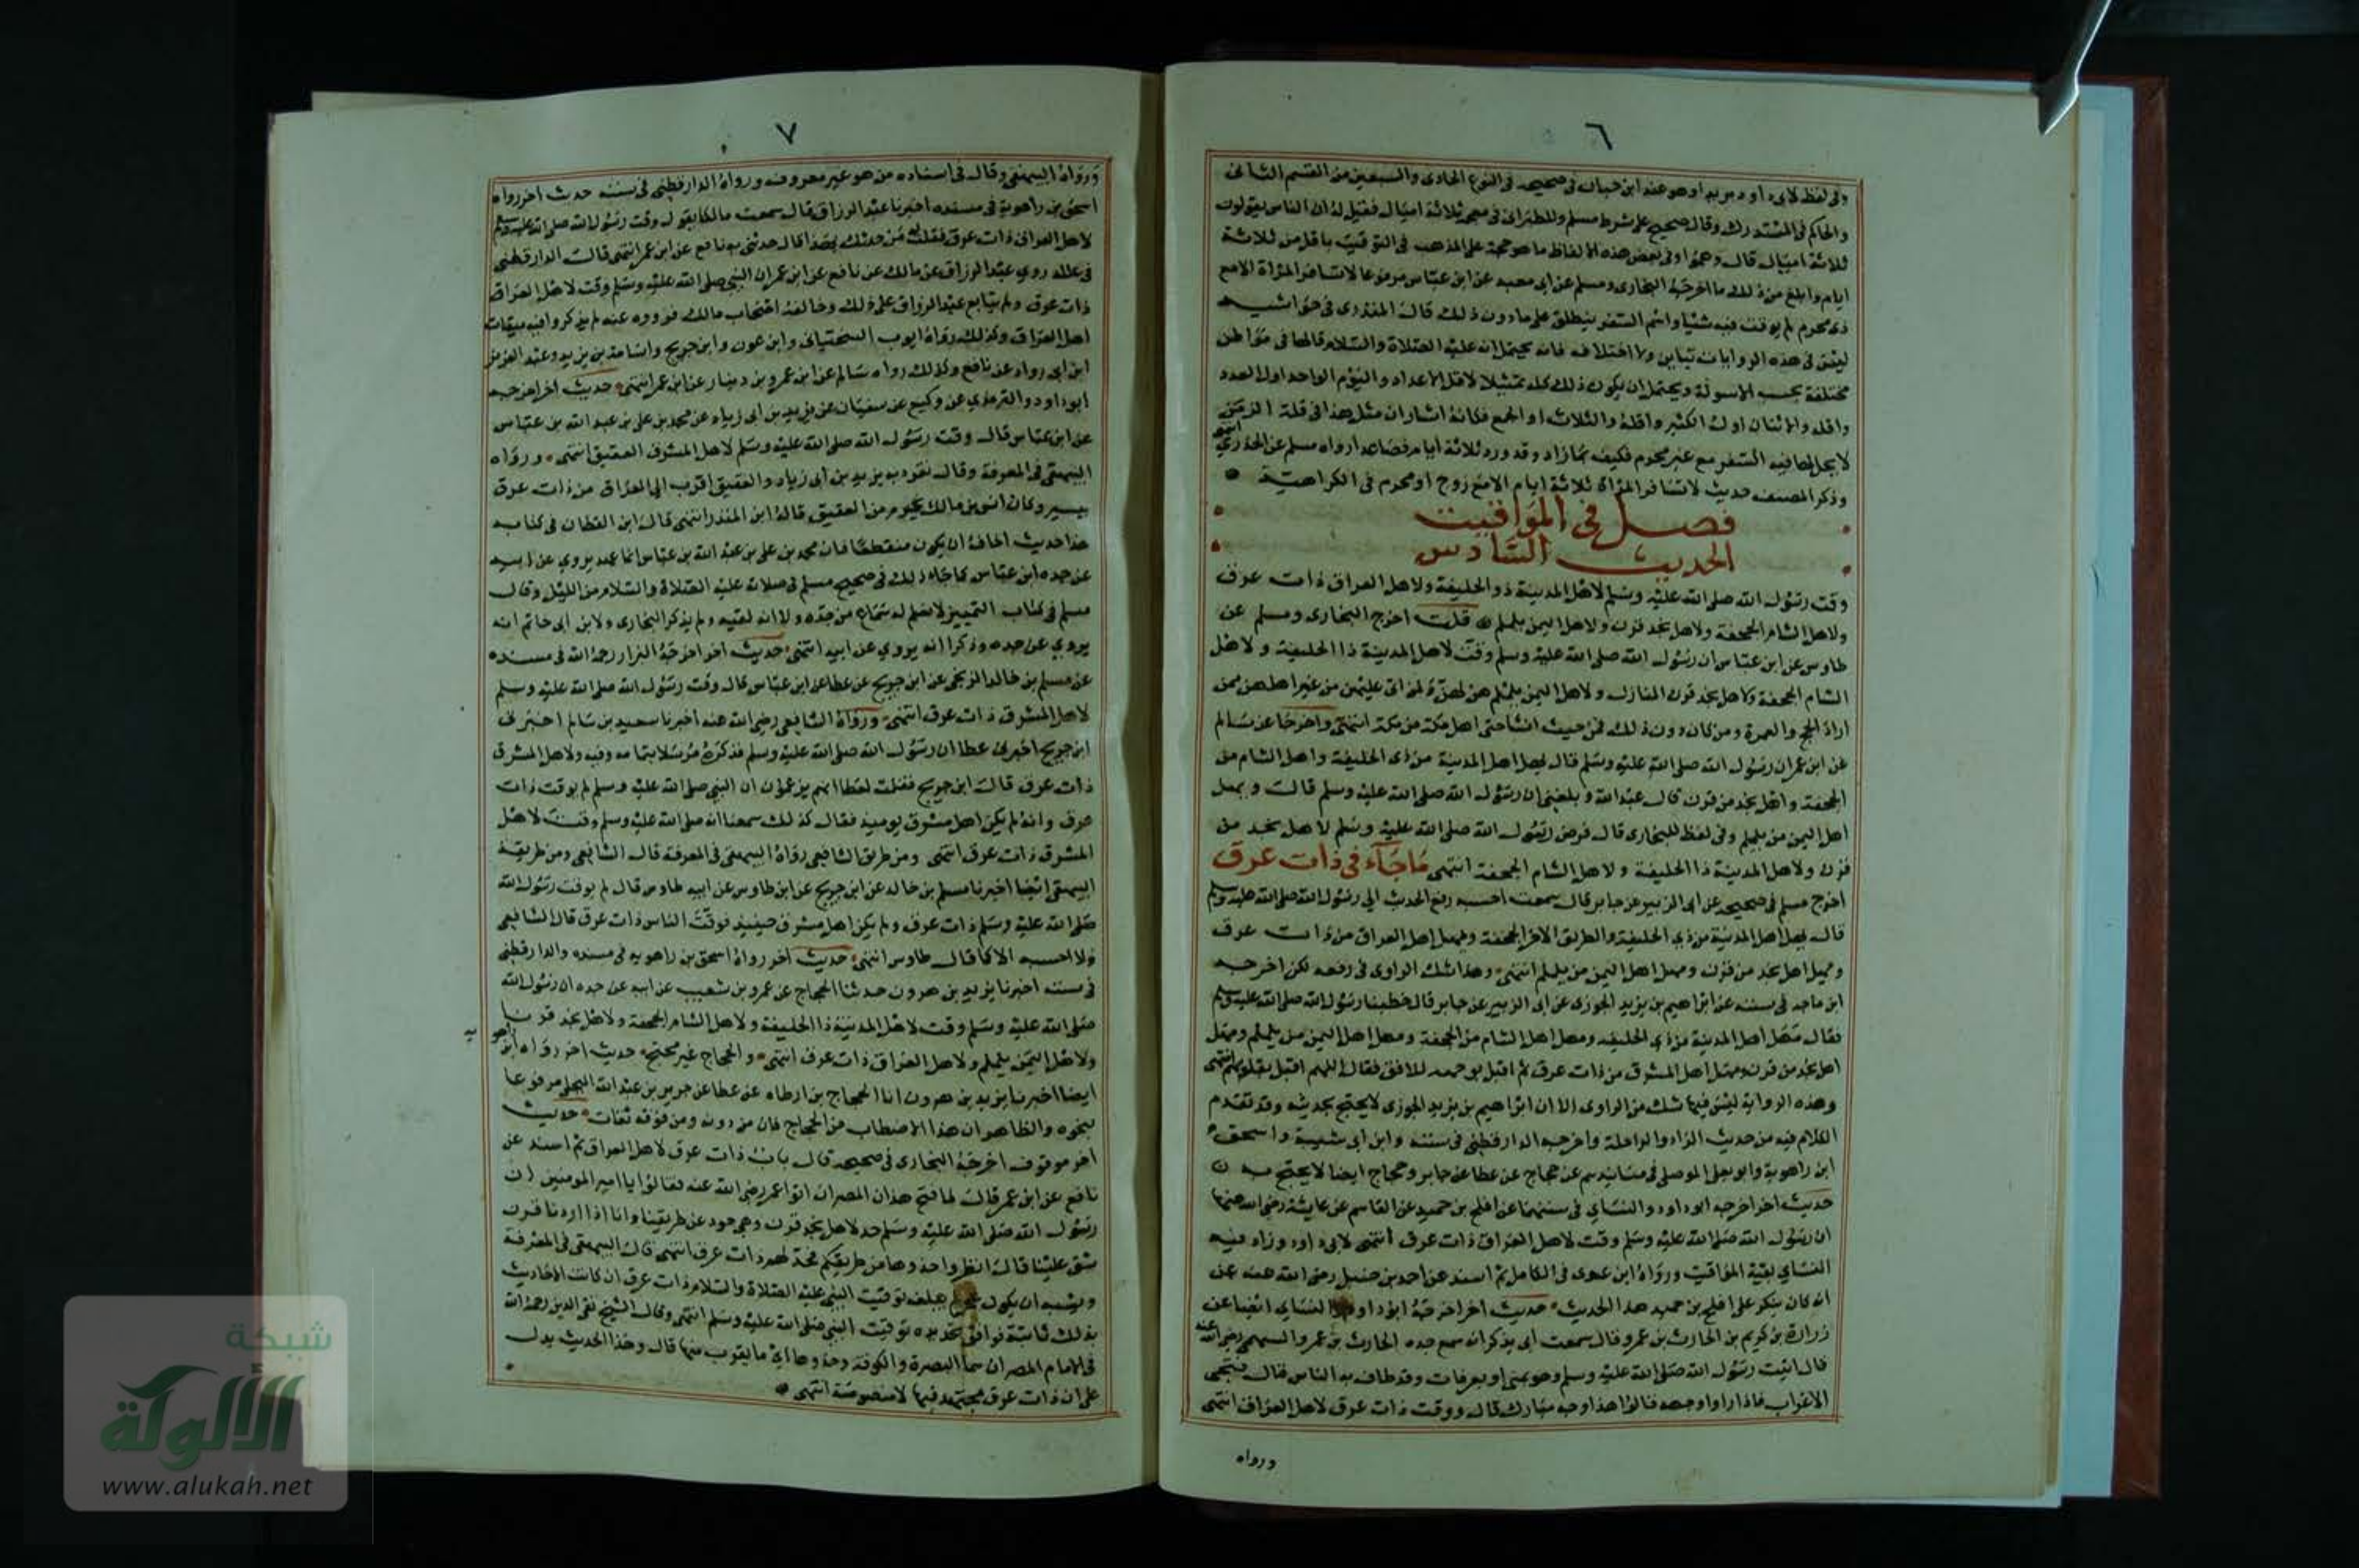 ٦
وفى لفظ لابى داود بريدا وهو عند ابن حبان فى صحيحه فى النوع الحادى والسبعين من القسم الثانى
والحاكم فى المستدرك وقال صحيح على شرط مسلم وللطبرانى فى معجمه ثلاثة اميال فقيل له ان الناس يقولون
ثلاثة ايام قال وهموا وفى بعض هذه الالفاظ ما هو حجة على المذهب فى التوقيت باقل من ثلاثة
ايام وابلغ من ذلك ما اخرجه البخارى ومسلم عن ابى معبد عن ابن عباس مرفوعا لا تسافر المراة الا مع
ذى محرم لم يوقت فيه شئا واسم السفر ينطلق على ما دون ذلك قال المنذرى فى حواشيه
ليس فى هذه الروايات تباين ولا اختلاف فانه يحتمل انه عليه الصلاة والسلام قالها فى مواطن
مختلفة بحسب الاسولة ويحتمل ان يكون ذلك كله تمثيلا لاقل الاعداد واليوم الواحد اول العدد
واقله والاثنان اول الكثير واقله والثلاث اول الجمع فكانه اشار ان مثل هذا فى قلة الزمن
لا يحل لها فيه السفر مع غير محرم فكيف بما زاد وقد ورد ثلاثة ايام فصاعدا رواه مسلم عن الخدرى انتهى
وذكر المصنف حديث لا تسافر المراة ثلاثة ايام الا مع زوج او محرم فى الكراهية
فصل فى المواقيت
الحديث السادس
وقت رسول الله صلى الله عليه وسلم لاهل المدينة ذو الحليفة ولاهل العراق ذات عرق
ولاهل الشام الجحفة ولاهل نجد قرن ولاهل اليمن يلملم قلت اخرج البخارى ومسلم عن
طاوس عن ابن عباس ان رسول الله صلى الله عليه وسلم وقت لاهل المدينة ذا الحليفة ولاهل
الشام الجحفة ولاهل نجد قرن المنازل ولاهل اليمن يلملم هن لهن ولمن اتى عليهن من غير اهلهن ممن
اراد الحج والعمرة ومن كان دون ذلك فمن حيث انشا حتى اهل مكة من مكة انتهى واخرجا عن سالم
عن ابن عمر ان رسول الله صلى الله عليه وسلم قال يهل اهل المدينة من ذى الحليفة واهل الشام من
الجحفة واهل نجد من قرن قال عبد الله وبلغنى ان رسول الله صلى الله عليه وسلم قال ويهل
اهل اليمن من يلملم وفى لفظ للبخارى قال فرض رسول الله صلى الله عليه وسلم لاهل نجد من
قرن ولاهل المدينة ذا الحليفة ولاهل الشام الجحفة انتهى ما جاء فى ذات عرق
اخرج مسلم فى صحيحه عن ابى الزبير عن جابر قال سمعت احسبه رفع الحديث الى رسول الله صلى الله عليه وسلم
قال يهل اهل المدينة من ذى الحليفة والطريق الاخر الجحفة ومهل اهل العراق من ذات عرق
ومهل اهل نجد من قرن ومهل اهل اليمن من يلملم انتهى وهذا شك الراوى فى رفعه لكن اخرجه
ابن ماجه فى سننه عن ابراهيم بن يزيد الجوزى عن ابى الزبير عن جابر قال خطبنا رسول الله صلى الله عليه وسلم
فقال مهل اهل المدينة من ذى الحليفه ومهل اهل الشام من الجحفة ومهل اهل اليمن من يلملم ومهل
اهل نجد من قرن ومهل اهل المشرق من ذات عرق ثم اقبل بوجهه للافق فقال اللهم اقبل بقلوبهم انتهى
وهذه الرواية ليس فيها شك من الراوى الا ان ابراهيم بن يزيد الجوزى لا يحتج بحديثه وقد تقدم
الكلام فيه من حديث الزاد والراحلة واخرجه الدارقطنى فى سننه وابن ابى شيبة واسحق
ابن راهوية وابو يعلى الموصلى فى مسانيدهم عن حجاج عن عطا عن جابر وحجاج ايضا لا يحتج به
حديث اخر اخرجه ابو داود والنسائ فى سننهما عن افلح بن حميد عن القاسم عن عايشة رضى الله عنها
ان رسول الله صلى الله عليه وسلم وقت لاهل العراق ذات عرق انتهى لابى داود وزاد فيه
النسائ بقية المواقيت ورواه ابن عدى فى الكامل ثم اسند عن احمد بن حنبل رضى الله عنه عن
انه كان ينكر على افلح بن حميد هذا الحديث حديث اخر اخرجه ابو داود والنسائ ايضا عن
زرارة بن كريم بن الحارث بن عمرو قال سمعت ابى يذكر انه سمع جده الحارث بن عمرو السهمى رضى الله عنه
قال اتيت رسول الله صلى الله عليه وسلم وهو بمنى او بعرفات وقد طاف به الناس قال فتجى
الاعراب فاذا راوا وجهه قالوا هذا وجه مبارك قال ووقت ذات عرق لاهل العراق انتهى
ورواه
٧
ورواه البيهقى وقال فى اسناده من هو غير معروف ورواه الدارقطنى فى سننه حديث اخر رواه
اسحق بن راهوية فى مسنده اخبرنا عبد الرزاق قال سمعت مالكا يقول وقت رسول الله صلى الله عليه وسلم
لاهل العراق ذات عرق فقلت له من حدثك بهذا قال حدثنى به نافع عن ابن عمر انتهى قال الدارقطنى
فى علله روى عبد الرزاق عن مالك عن نافع عن ابن عمر ان النبى صلى الله عليه وسلم وقت لاهل العراق
ذات عرق ولم يتابع عبد الرزاق على ذلك وخالفه اصحاب مالك فرووه عنه لم يذكروا فيه ميقات
اهل العراق وكذلك رواه ايوب السختيانى وابن عون وابن جريج واسامة بن يزيد وعبد العزيز
ابن ابى رواد عن نافع وكذلك رواه سالم عن ابن عمر وبن دينار عن ابن عمر انتهى حديث اخر اخرجه
ابو داود والترمذي عن وكيع عن سفيان عن يزيد بن ابى زياد عن محمد بن على بن عبد الله بن عباس
عن ابن عباس قال وقت رسول الله صلى الله عليه وسلم لاهل المشرق العقيق انتهى ورواه
البيهقى فى المعرفة وقال تفرد به يزيد بن ابى زياد والعقيق اقرب الى العراق من ذات عرق
بيسير وكان انس بن مالك يحرم من العقيق قاله ابن المنذر انتهى قال ابن القطان فى كتابه
هذا حديث اخاف ان يكون منقطعا فان محمد بن على بن عبد الله بن عباس انما عهد يروي عن ابيه
عن جده ابن عباس كما جاء ذلك فى صحيح مسلم فى صلاته عليه الصلاة والسلام من الليل وقال
مسلم فى كتاب التمييز لا يعلم له سماع من جده ولا انه لقيه ولم يذكر البخارى ولا ابن ابى حاتم انه
يروي عن جده وذكرا انه يروي عن ابيه انتهى حديث اخر اخرجه البزار رحمه الله فى مسنده
عن مسلم بن خالد الزنجى عن ابن جريج عن عطا عن ابن عباس قال وقت رسول الله صلى الله عليه وسلم
لاهل المشرق ذات عرق انتهى ورواه الشافعى رضى الله عنه اخبرنا سعيد بن سالم اخبرنى
ابن جريج اخبرنى عطا ان رسول الله صلى الله عليه وسلم فذكره مرسلا بتمامه وفيه ولاهل المشرق
ذات عرق قال ابن جريج فقلت لعطا انهم يزعمون ان النبى صلى الله عليه وسلم لم يوقت ذات
عرق وانه لم يكن اهل مشرق يوميذ فقال كذلك سمعنا انه صلى الله عليه وسلم وقت لاهل
المشرق ذات عرق انتهى ومن طريق الشافعى رواه البيهقى فى المعرفة قال الشافعى ومن طريقه
البيهقى ايضا اخبرنا مسلم بن خالد عن ابن جريج عن ابن طاوس عن ابيه طاوس قال لم يوقت رسول الله
صلى الله عليه وسلم ذات عرق ولم يكن اهل مشرق حينيذ فوقت الناس ذات عرق قال الشافعى
ولا احسبه الا كما قال طاوس انتهى حديث اخر رواه اسحق بن راهويه فى مسنده والدارقطنى
فى سننه اخبرنا يزيد بن هرون حدثنا الحجاج عن عمرو بن شعيب عن ابيه عن جده ان رسول الله
صلى الله عليه وسلم وقت لاهل المدينة ذا الحليفة ولاهل الشام الجحفة ولاهل نجد قرنا
ولاهل اليمن يلملم ولاهل العراق ذات عرق انتهى والحجاج غير محتج حديث اخر رواه ابن راهويه
ايضا اخبرنا يزيد بن هرون انا الحجاج بن ارطاه عن عطا عن جرير بن عبد الله البجلى مرفوعا
بنحوه والظاهر ان هذا الاضطاب من الحجاج فان من دونه ومن فوقه ثقات حديث
اخر موقوف اخرجه البخارى فى صحيحه قال باب ذات عرق لاهل العراق ثم اسند عن
نافع عن ابن عمر قال لما فتح هذان المصران اتوا عمر رضى الله عنه فقالوا يا امير المومنين ان
رسول الله صلى الله عليه وسلم حد لاهل نجد قرن وهى جود عن طريقنا وانا اذا اردنا قرن
شق علينا قال انظروا حذوها من طريقكم فحد لهم ذات عرق انتهى قال البيهقى فى المعرفة
ويشبه ان يكون عمر لم يبلغه توقيت النبى عليه الصلاة والسلام ذات عرق ان كانت الاحاديث
بذلك ثابتة فوافق تحديده توقيت النبى صلى الله عليه وسلم انتهى وقال الشيخ تقى الدين رحمه الله
فى الامام المصران هما البصرة والكوفة وحذوها اى ما يقرب منها قال وهذا الحديث يدل
على ان ذات عرق مجتهد فيها لا منصوصة انتهى
شبكة
الألوكة
www.alukah.net